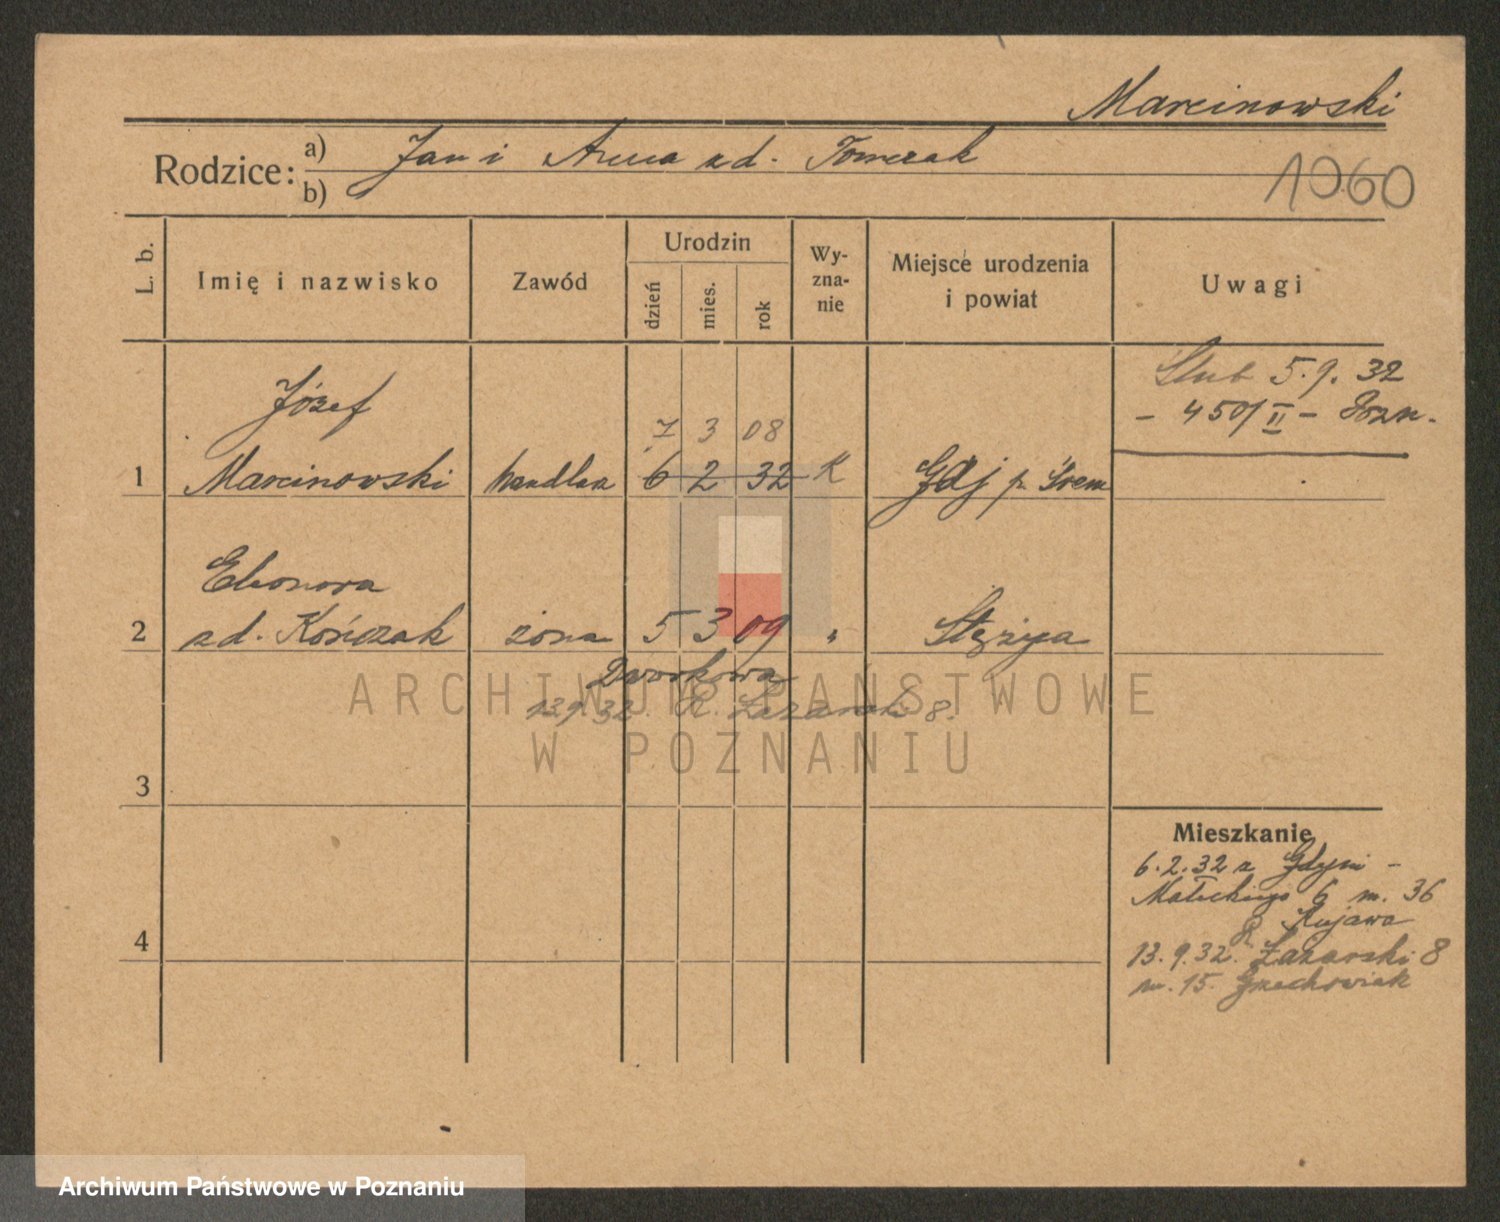 Marcinowski
Rodzice: a) Jan i Anna zd. Tomczak
b)
1060
L. b. Imię i nazwisko Zawód Urodzin dzień mies. rok Wy-zna-nie Miejsce urodzenia i powiat Uwagi
Ślub 5.9.32
- 450/II - Pozn.
Józef
7 3 08
1 Marcinowski handlarz 6 2 32 K Gdj p. Śrem
Eleonora
2 zd. Kończak żona 5 3 09 " Stężyca
Dworkowa
13.9.32. R. Łazarski 8.
ARCHIWUM PAŃSTWOWE
W POZNANIU
3
Mieszkanie
6.2.32 z Gdyni -
Małeckiego 6 m. 36
R. Kujawa
4
13.9.32. Łazarski 8
m. 15. Grzechowiak
Archiwum Państwowe w Poznaniu